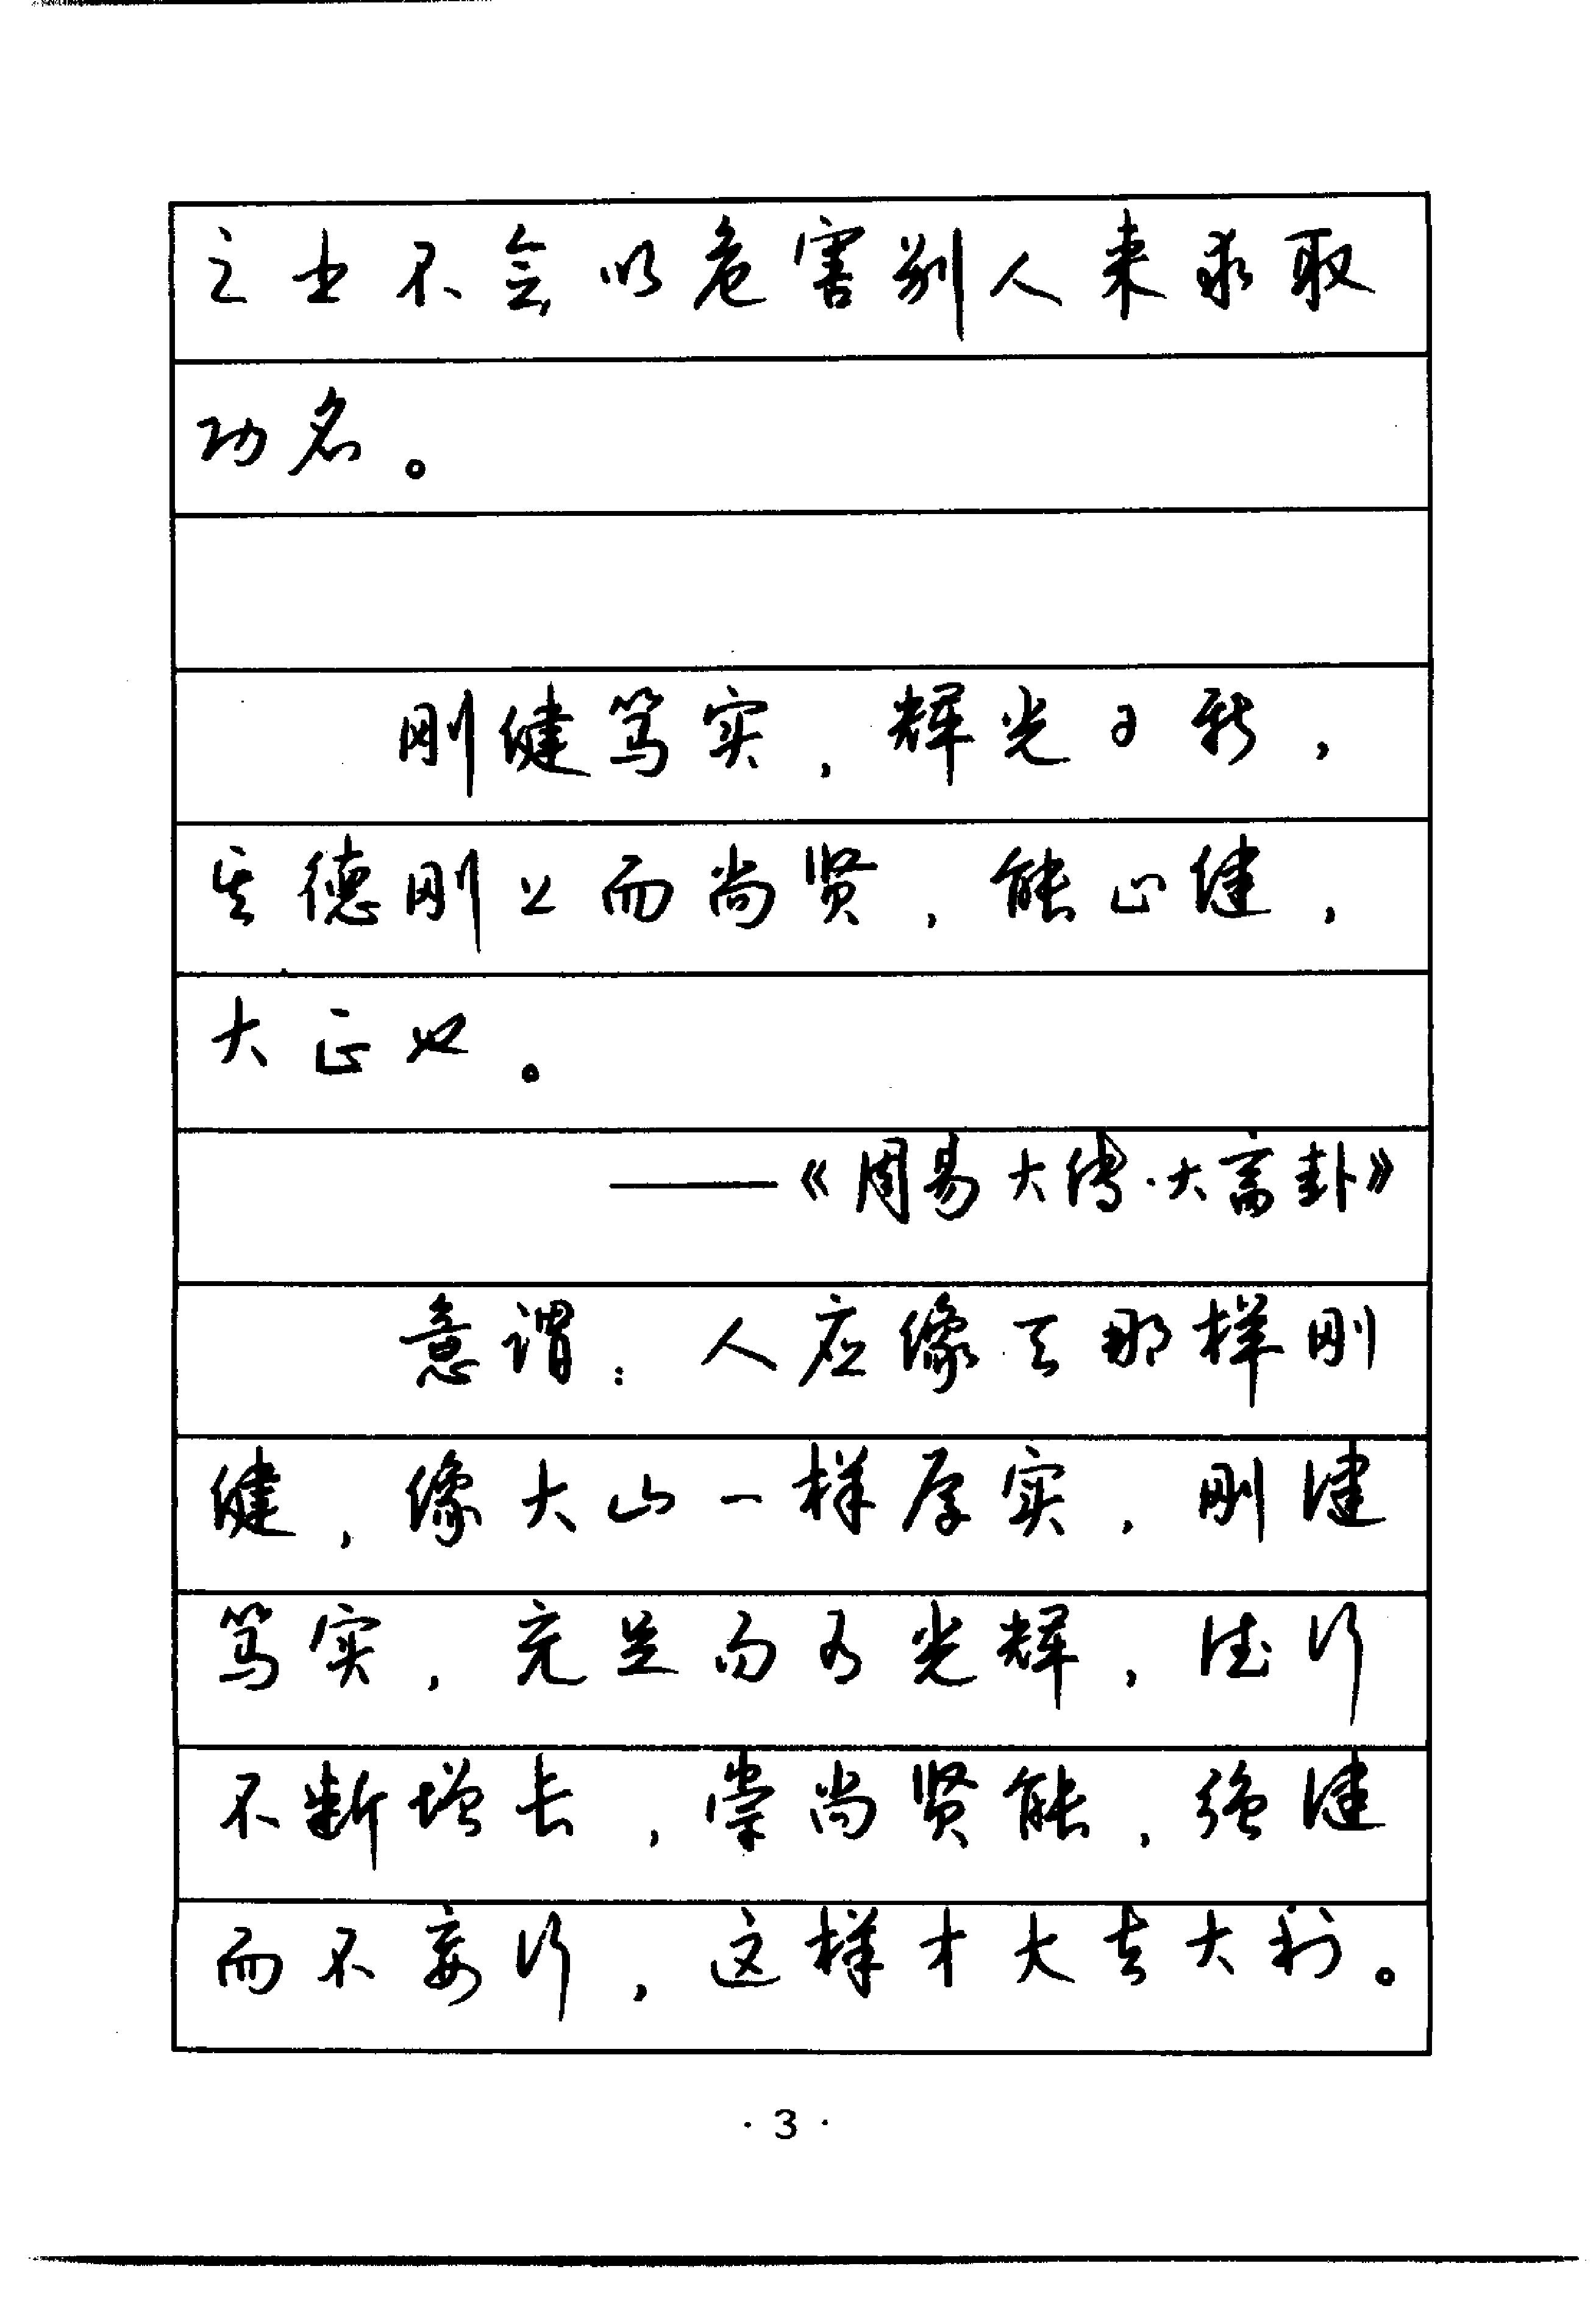 之士不会以危害别人来求取
功名。
刚健笃实，辉光日新，
其德刚上而尚贤，能止健，
大正也。
——《周易大传·大畜卦》
意谓：人应像天那样刚
健，像大山一样厚实，刚健
笃实，充足而有光辉，德行
不断增长，崇尚贤能，强健
而不妄行，这样才大吉大利。
·3·